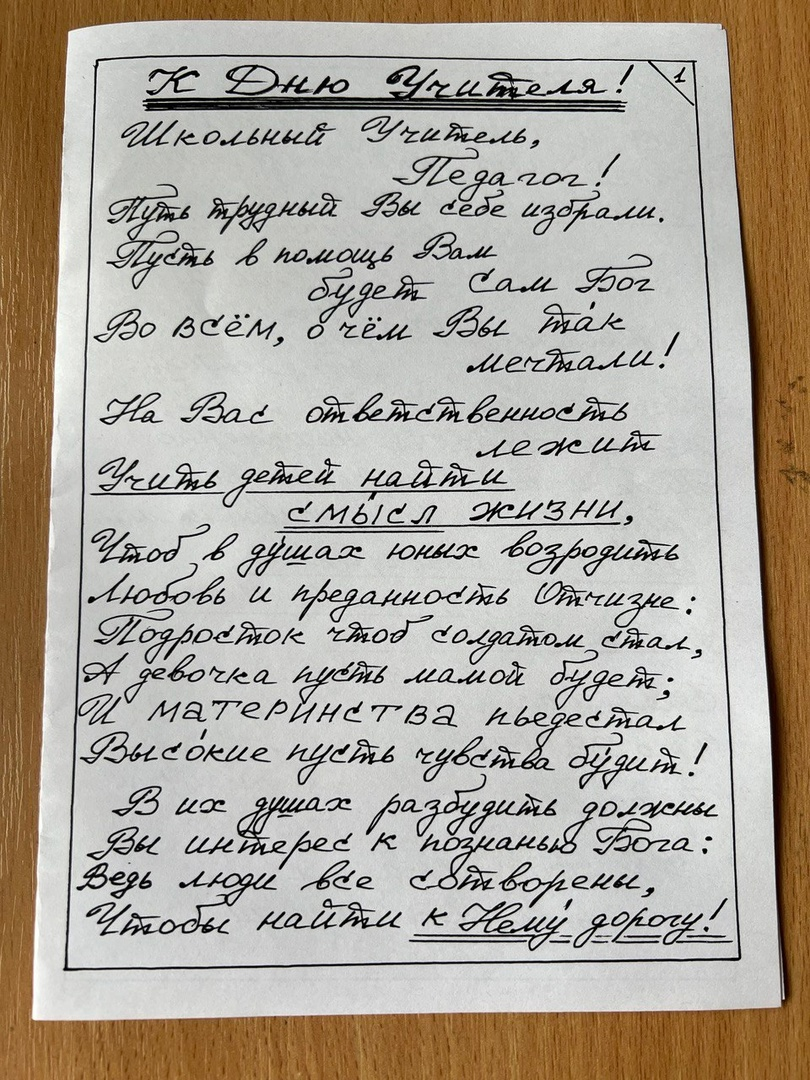 К Дню Учителя!
1
Школьный Учитель,
Педагог!
Путь трудный Вы себе избрали.
Пусть в помощь Вам
будет Сам Бог
Во всём, о чём Вы та́к
мечтали!
На Вас ответственность
лежит
Учить детей найти
смы́сл жизни,
Чтоб в ду́шах юных возродить
Любовь и преданность Отчизне:
Подросток чтоб солдатом стал,
А девочка пусть мамой будет;
И материнства пьедестал
Высо́кие пусть чувства бу́дит!
В их душах разбудить должны
Вы интерес к познанью Бога:
Ведь люди все сотворены,
Чтобы найти к Нему́ дорогу!